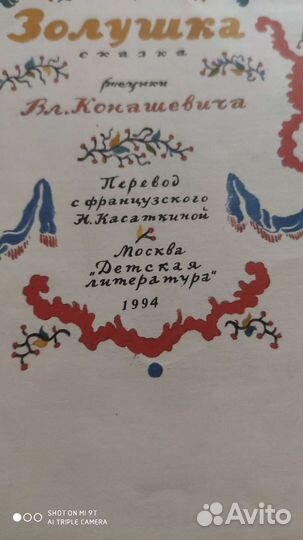 Золушка
сказка
рисунки
Вл. Конашевича
Перевод
с французского
Н. Касаткиной
Москва
"Детская
литература"
1994
SHOT ON MI 9T
AI TRIPLE CAMERA
Avito